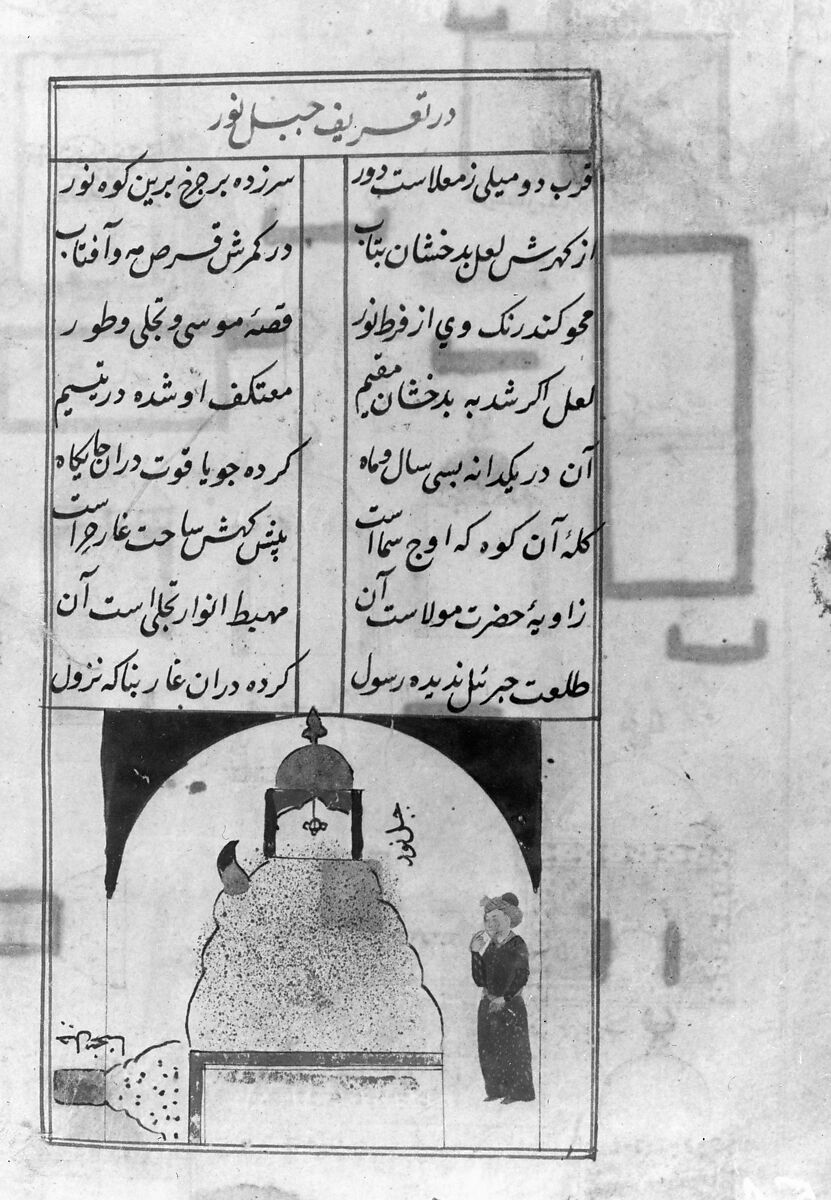 در تعریف جبل نور
قرب دو میلی ز معلاست دور سر زده بر چرخ برین کوه نور
از کهرش لعل بدخشان بتاب در کمرش قرص مه و آفتاب
محو کند رنک وي از فرط نور قصهٔ موسی و تجلی و طور
لعل اکر شد به بدخشان مقیم معتکف او شده در یتیم
آن در یکدانه بسی سال و ماه کرده چو یاقوت دران جایکاه
کلهٔ آن کوه که اوج سما است پیش کهش ساحت غار حرا است
زاویهٔ حضرت مولاست آن مهبط انوار تجلی است آن
طلعت جبرئیل ندیده رسول کرده دران غار بناکه نزول
جبل نور